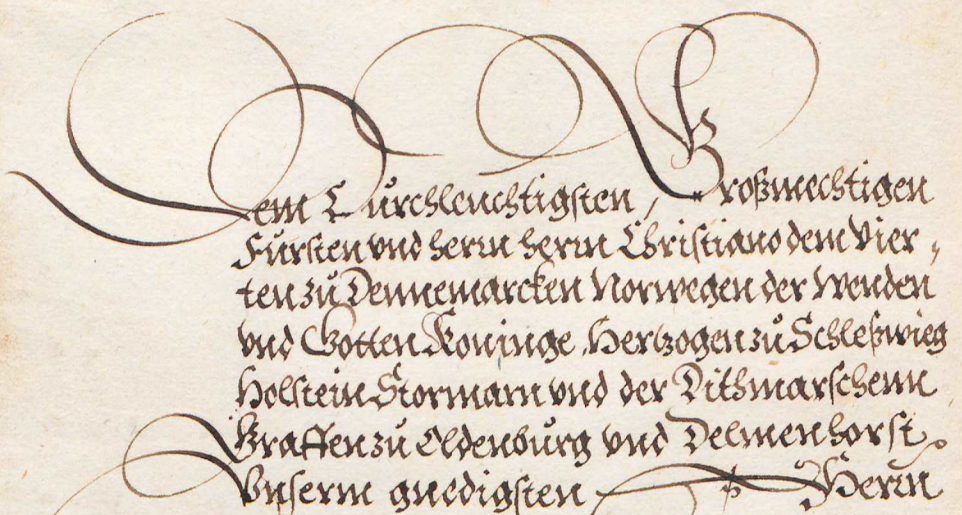 Dem Dürchleuchtigsten, Großmechtigen
Fürsten vnd herrn herrn Christiano dem Vier,
ten zü Dennemarcken Norwegen der Wenden
vnd Gotten Koninge, Hertzogen zü Schleßwieg
Holstein Stormarn vnd der Dithmarschenn
Graffen zü Oldenbürg vnd Delmenhorst.
Vnserm gnedigsten Herrn